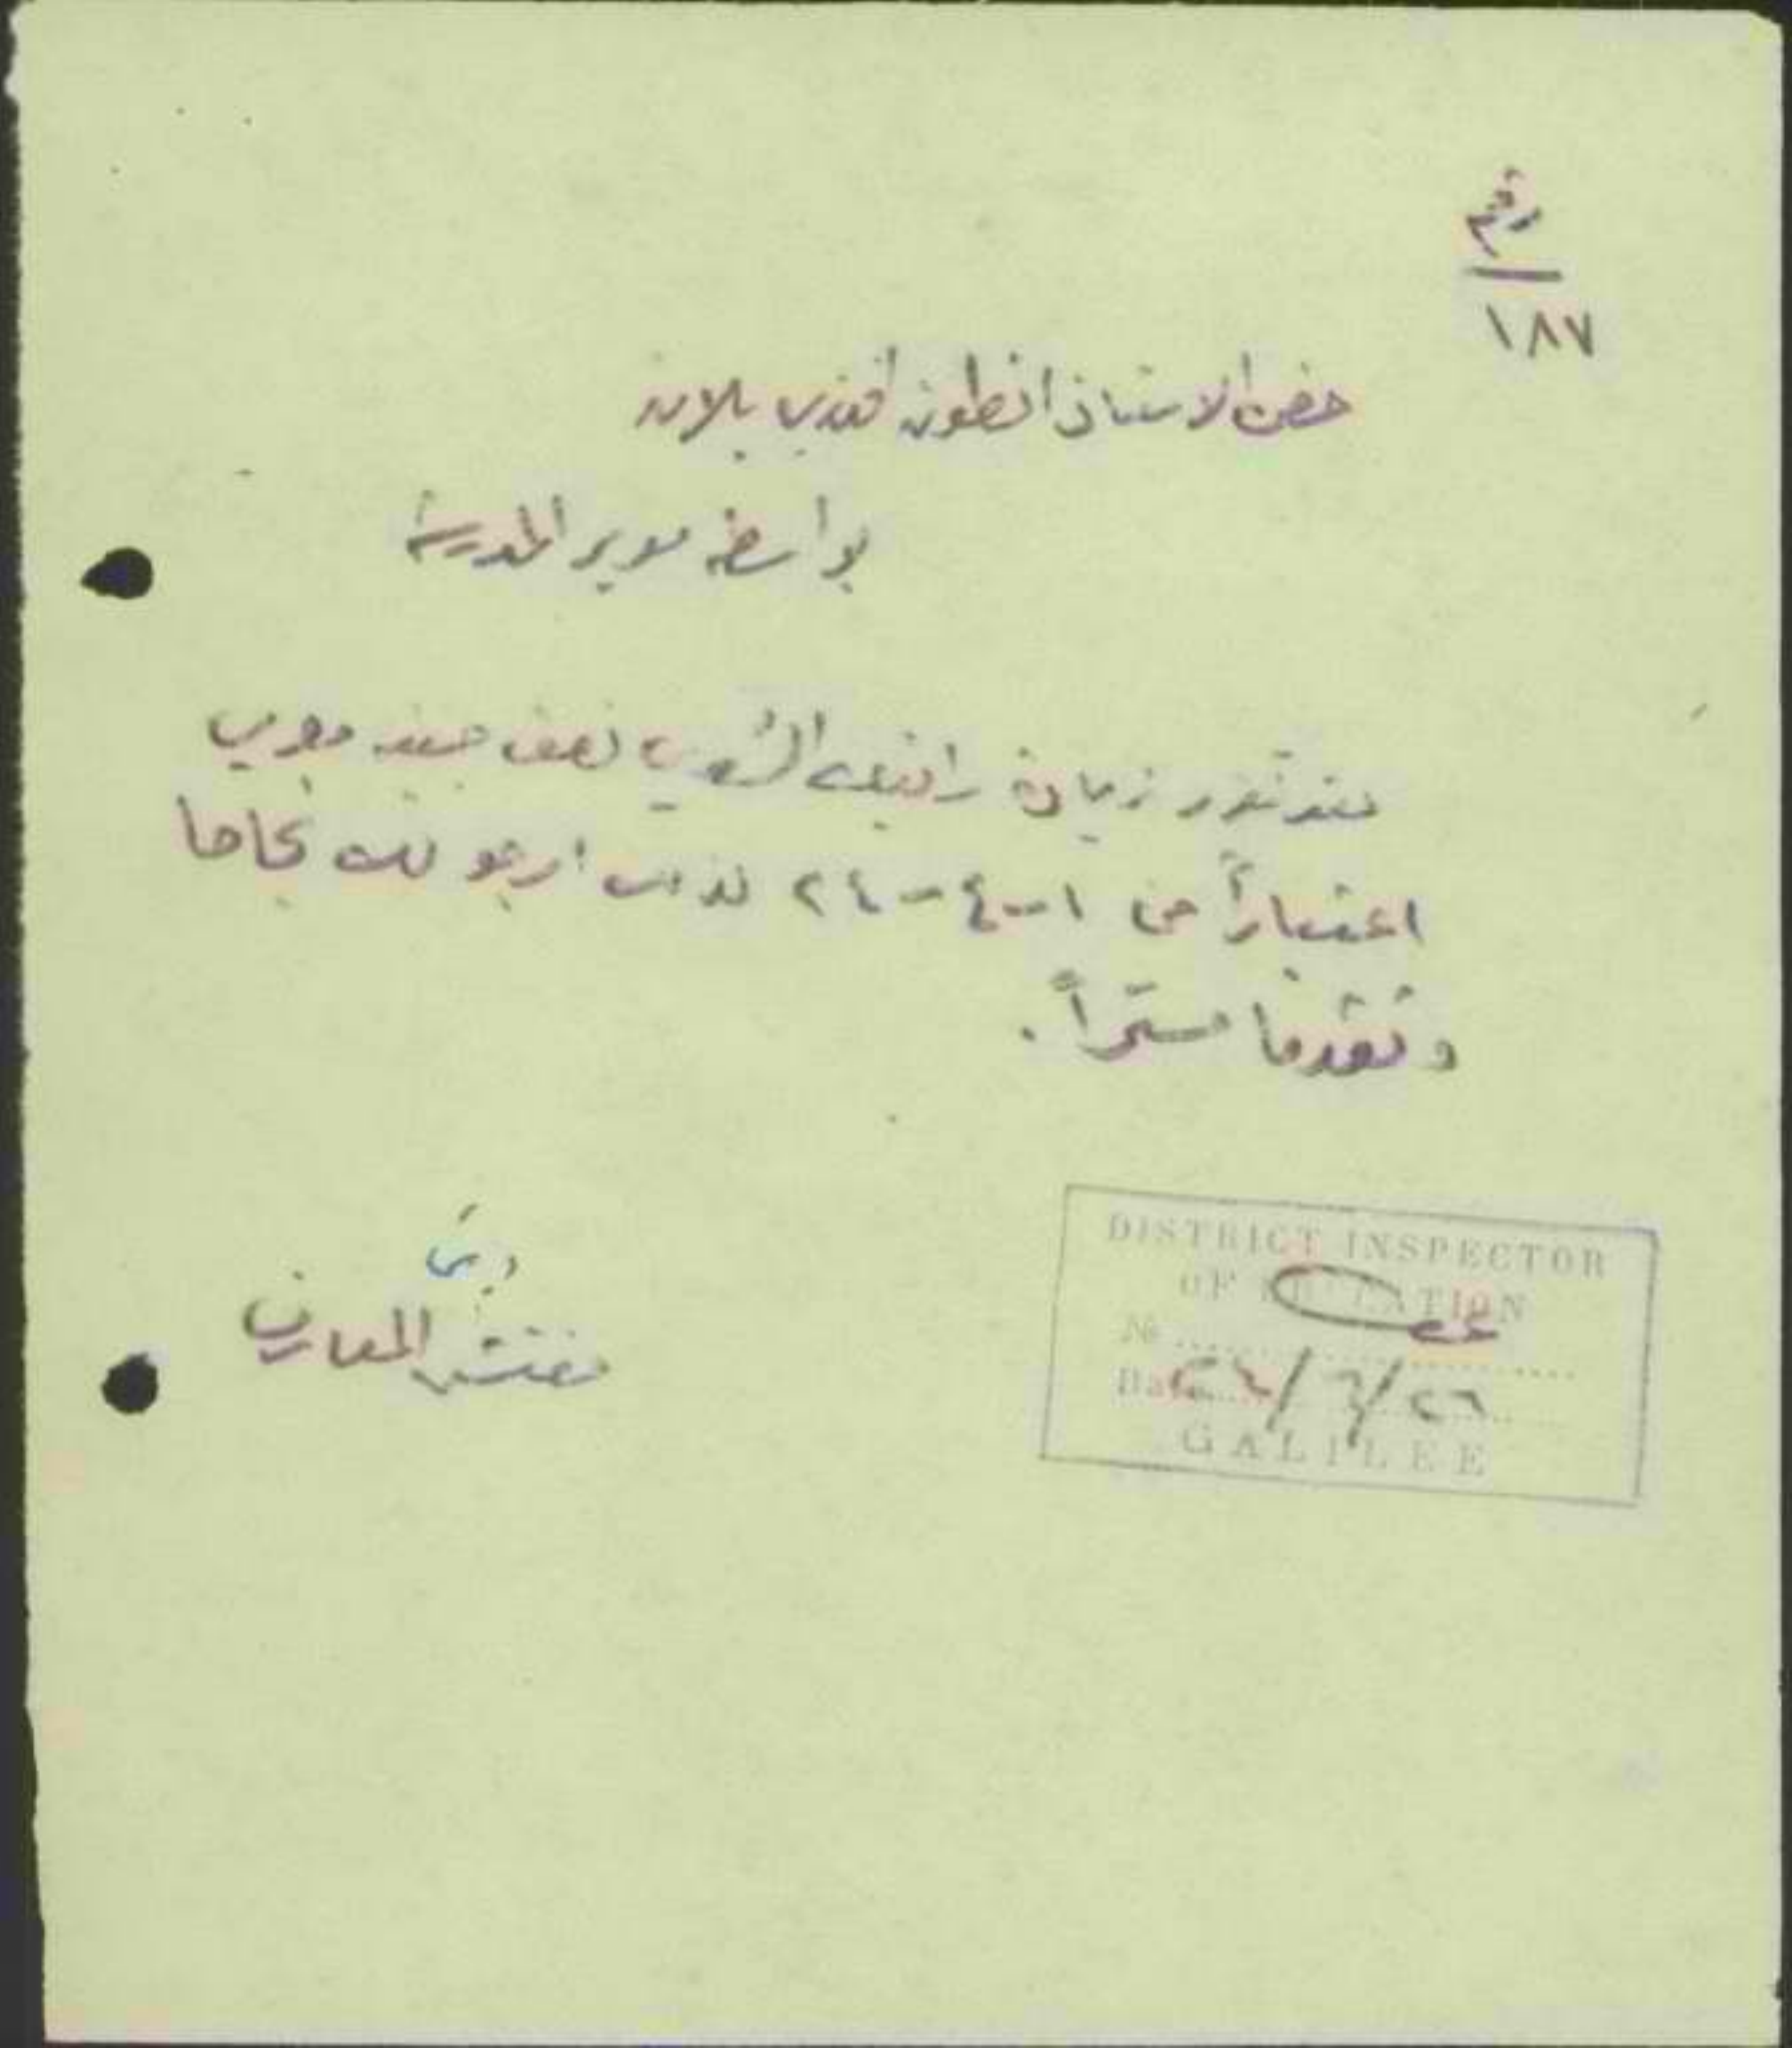 رقم
١٨٧
حضرة الاستاذ انطون افندي بلان
بواسطة مدير المدرسة
فقد تقرر زيادة راتبك الشهري نصف جنيه مصري
اعتباراً من ١-٤-٢٤ لذلك ارجو لك نجاحا
وتقدما مستمراً.
مفتش المعارف
DISTRICT INSPECTOR
OF EDUCATION
№
Date ٢٤/٦/٢٦
GALILEE